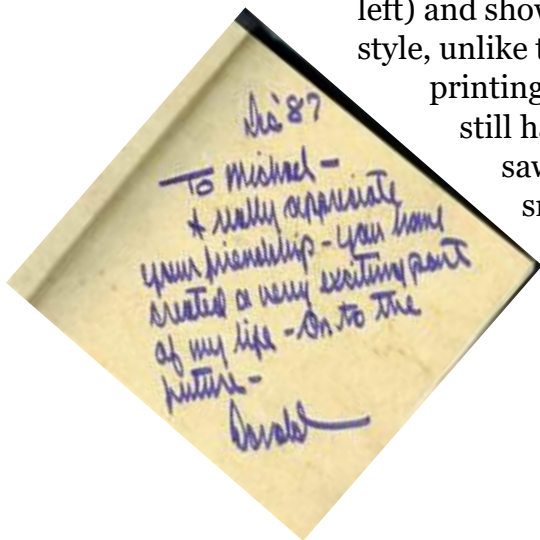 left) and show
style, unlike t
printing
still ha
saw
sn
Dec '87
To Michael -
I really appreciate
your friendship - you have
created a very exciting part
of my life - On to the
future -
Donald